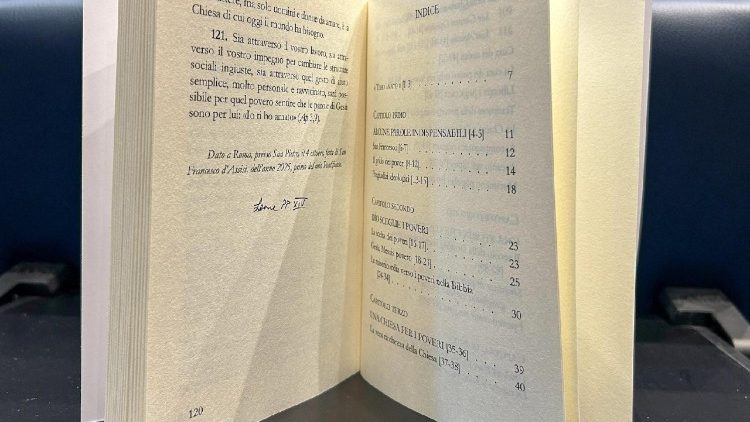 Chiesa di cui oggi il mondo ha bisogno.
121. Sia attraverso il vostro lavoro, sia attra-
verso il vostro impegno per cambiare le strutture
sociali ingiuste, sia attraverso quel gesto di aiuto
semplice, molto personale e ravvicinato, sarà pos-
sibile per quel povero sentire che le parole di Gesù
sono per lui: «Io ti ho amato» (Ap 3,9).
Dato a Roma, presso San Pietro, il 4 ottobre, festa di San
Francesco d'Assisi, nell'anno 2025, primo del mio Pontificato.
Leone PP XIV
120
INDICE
«Ti ho amato» [1-3] 7
Capitolo primo
ALCUNE PAROLE INDISPENSABILI [4-5] 11
San Francesco [6-7] 12
Il grido dei poveri [8-12] 14
Pregiudizi ideologici [13-15] 18
Capitolo secondo
DIO SCEGLIE I POVERI 23
La scelta dei poveri [16-17] 23
Gesù, Messia povero [18-23] 25
La misericordia verso i poveri nella Bibbia
[24-34] 30
Capitolo terzo
UNA CHIESA PER I POVERI [35-36] 39
La vera ricchezza della Chiesa [37-38] 40